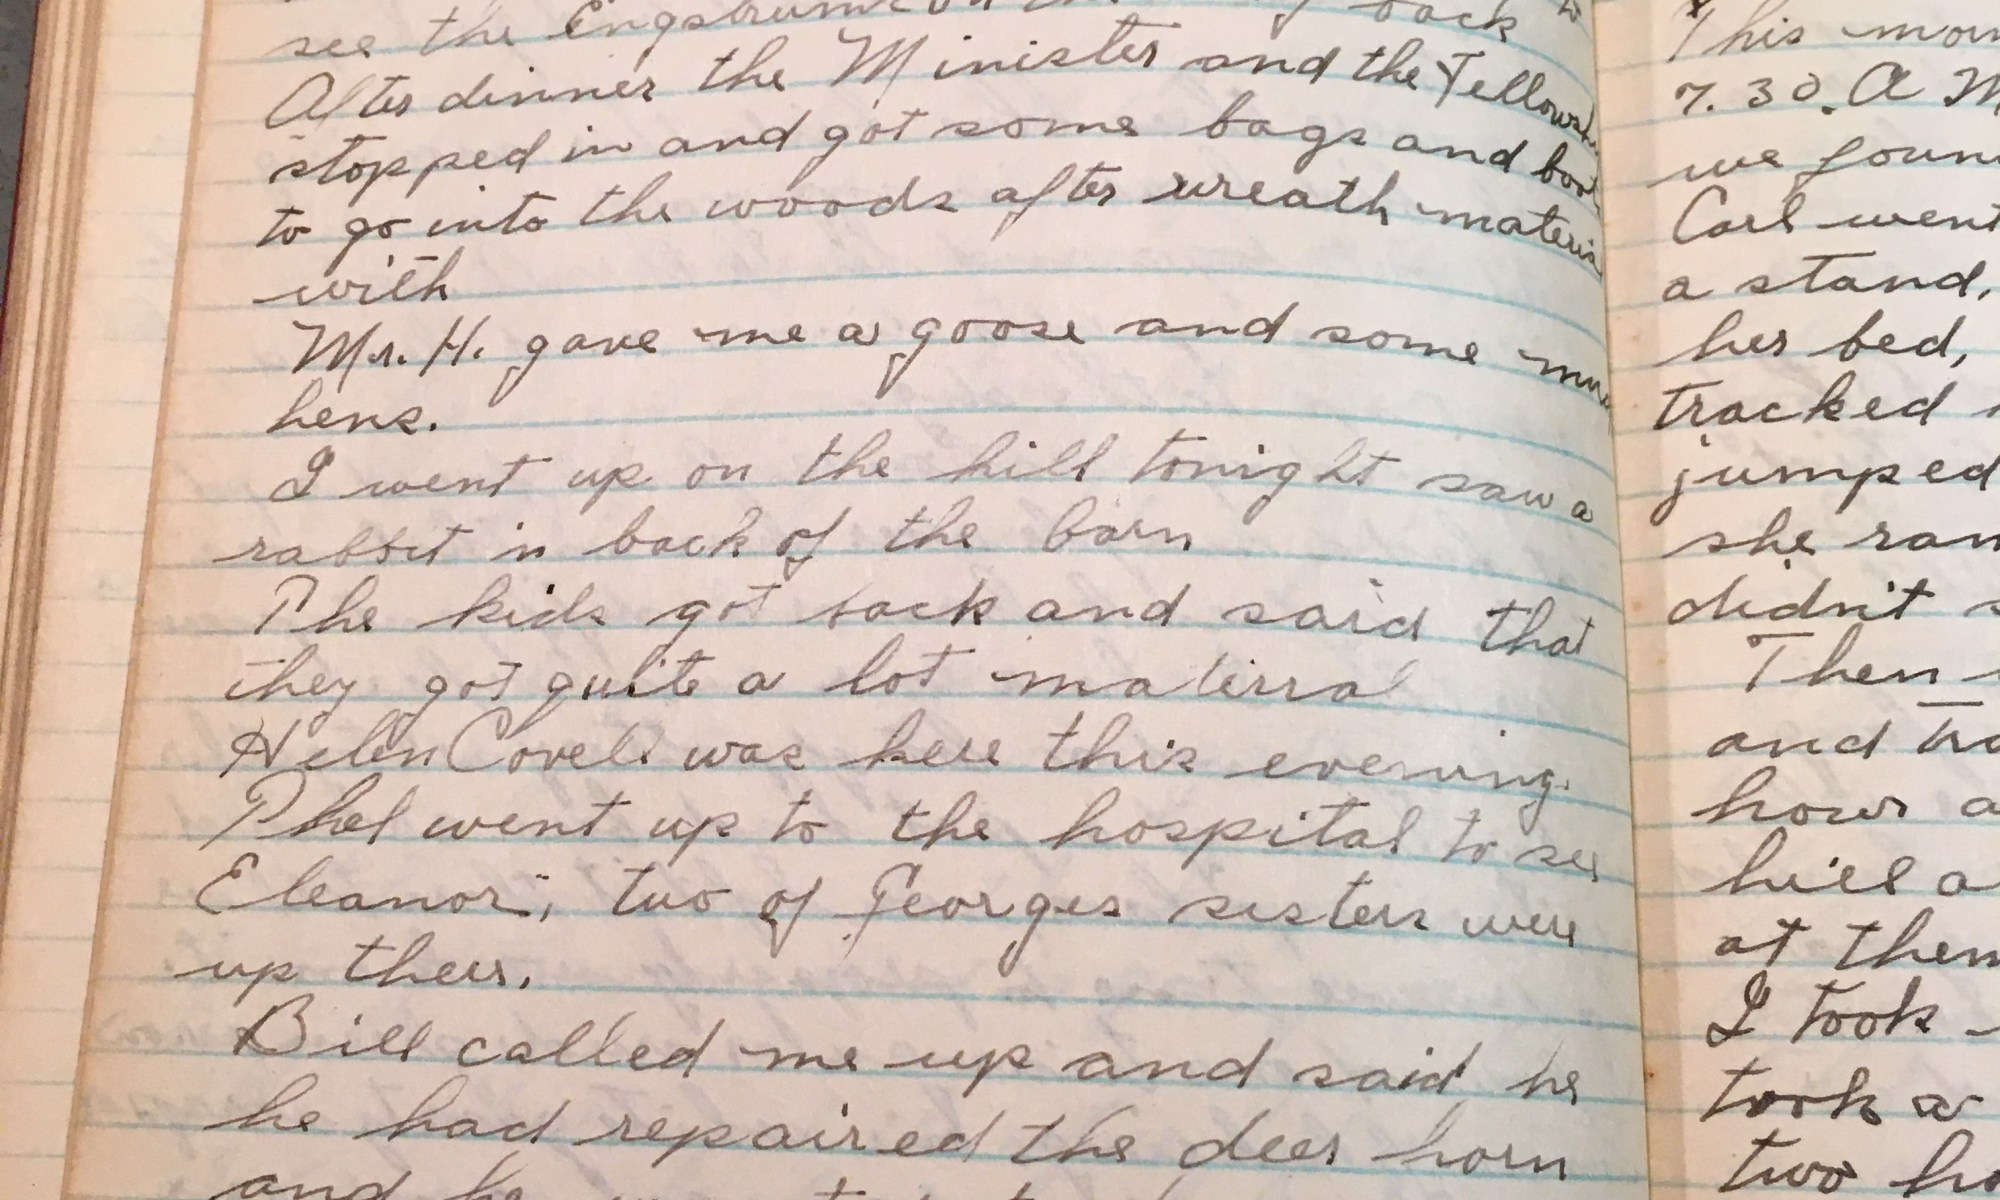 see the
After dinner the Minister and the Fellowsh
stopped in and got some bags and boot
to go into the woods after wreath materia
with
Mr. H. gave me a goose and some
hens.
I went up on the hill tonight saw a
rabbit in back of the barn
The kids got back and said that
they got quite a lot matirial
Helen Covell was here this evening.
Phel went up to the hospital to see
Eleanor, two of Georges sisters were
up there.
Bill called me up and said he
he had repaired the deer horn
and he
This morn
7.30. A M
we foun
Carl went
a stand,
her bed,
tracked
jumped
she ran
didn't s
Then
and tra
hour a
hill a
at them
I took
took a
two ho